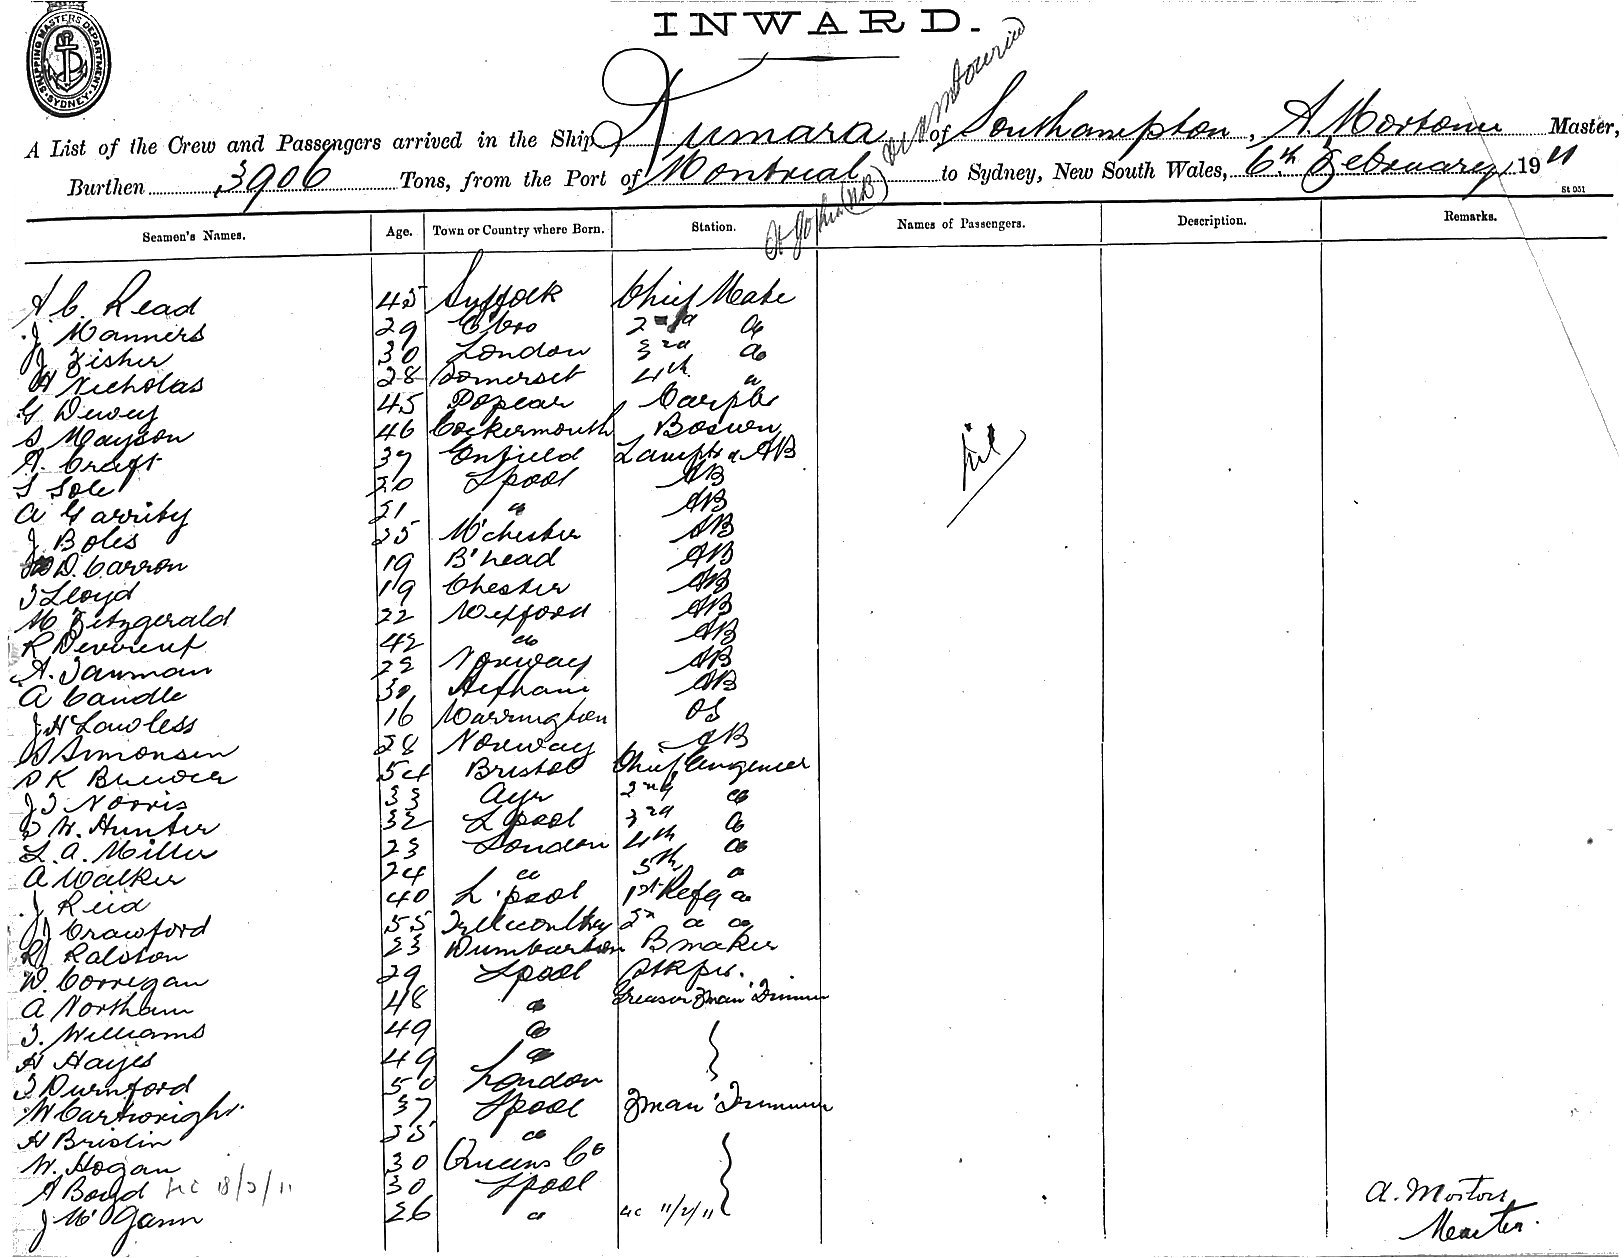 SHIPPING MASTERS DEPARTMENT SYDNEY
INWARD.
A List of the Crew and Passengers arrived in the Ship Kumara of Southampton, A. Morton Master,
Burthen 3906 Tons, from the Port of Montreal to Sydney, New South Wales, 6th February 1911
St 051
Seamen's Names. Age. Town or Country where Born. Station. Names of Passengers. Description. Remarks.
A C. Read 45 Suffolk Chief Mate
J Manners 29 2nd "
J Fisher 30 London 3rd "
H Nicholas 28 Somerset 4th "
G Dewey 45 Poplar Carptr
S Mayson 46 Cockermouth Bosun
A. Craft 37 Enfield Lamptr & AB
S Sole 20 Lpool AB
A Garrity 21 " AB
J Boles 25 M'chester AB
D. Carron 19 B'head AB
T Lloyd 19 Chester AB
M Fitzgerald 22 Wexford AB
R Devereux 42 " AB
A. Tauman Norway AB
A Caudle 30 AB
J H Lawless 16 Warrington OS
Simonsen 28 Norway AB
54 Bristol Chief Engineer
J T Norris 33 Ayr 2nd "
T W. Hunter 32 Lpool 3rd "
L. A. Miller 23 London 4th "
A Walker 24 " 5th "
J Reid 40 L'pool 1st Refg "
J Crawford 55 Tyllicoultry 2n " "
R Ralston 23 Dumbarton B maker
W. Corrigan 29 Lpool Strkpr.
A Northam 48 " Greaser Fman Trimmer
T. Williams 49 "
H Hayes 49 "
T Durnford 50 London
W Cartwright 37 Lpool Fman Trimmer
H Brislin 35 "
W. Hogan 30 Queens Co
A Boyd 30 Lpool
J McGann 26 " 11/2/11
Nil
A. Morton
Master.